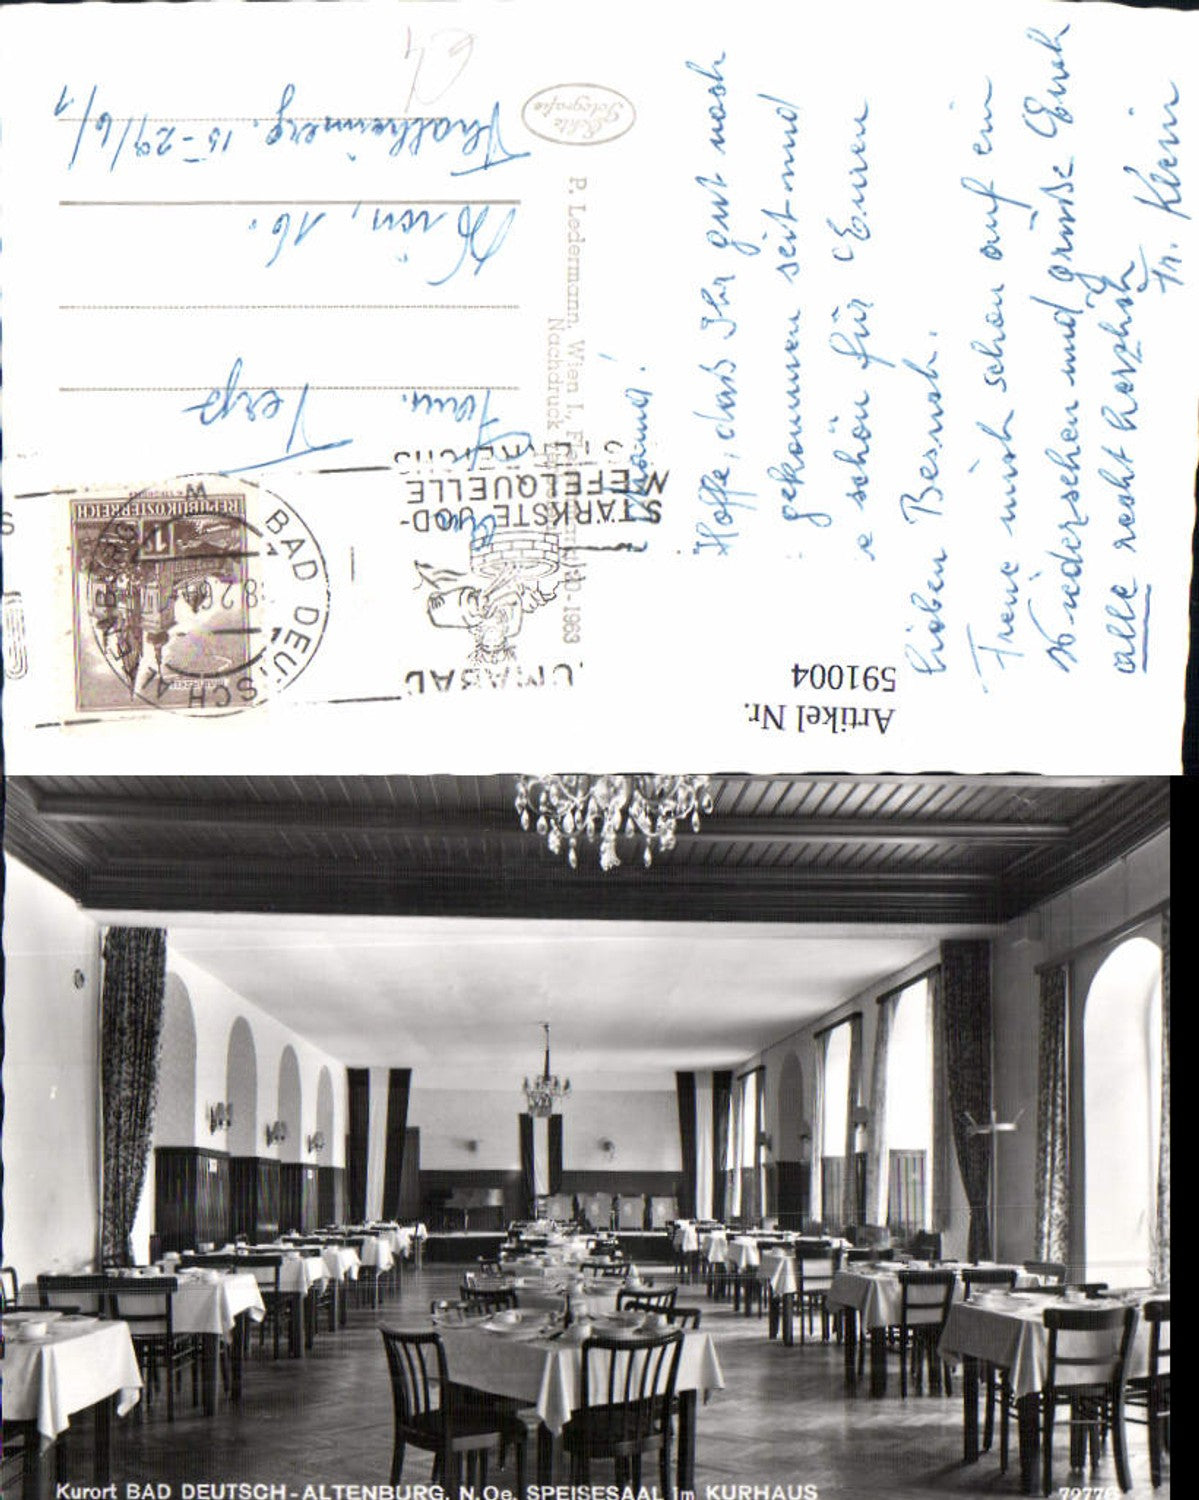 Hoffe, daß Ihr gut nach
gekommen seit und
e schön für Euren
lieben Besuch.
Freue mich schon auf ein
Wiedersehen und grüße Euch
alle recht herzlich
Fr. Klein
Fam.
Wien, 16.
Thalheimerg. 15-29/6/1
Echte
Fotografie
P. Ledermann, Wien I.,
Nachdruck
1963
REPUBLIK ÖSTERREICH
BAD DEUTSCH ALTENBURG
STÄRKSTE JOD-
WEFELQUELLE
REICHS
Artikel Nr.
591004
Kurort BAD DEUTSCH-ALTENBURG, N.Oe. SPEISESAAL im KURHAUS
79776